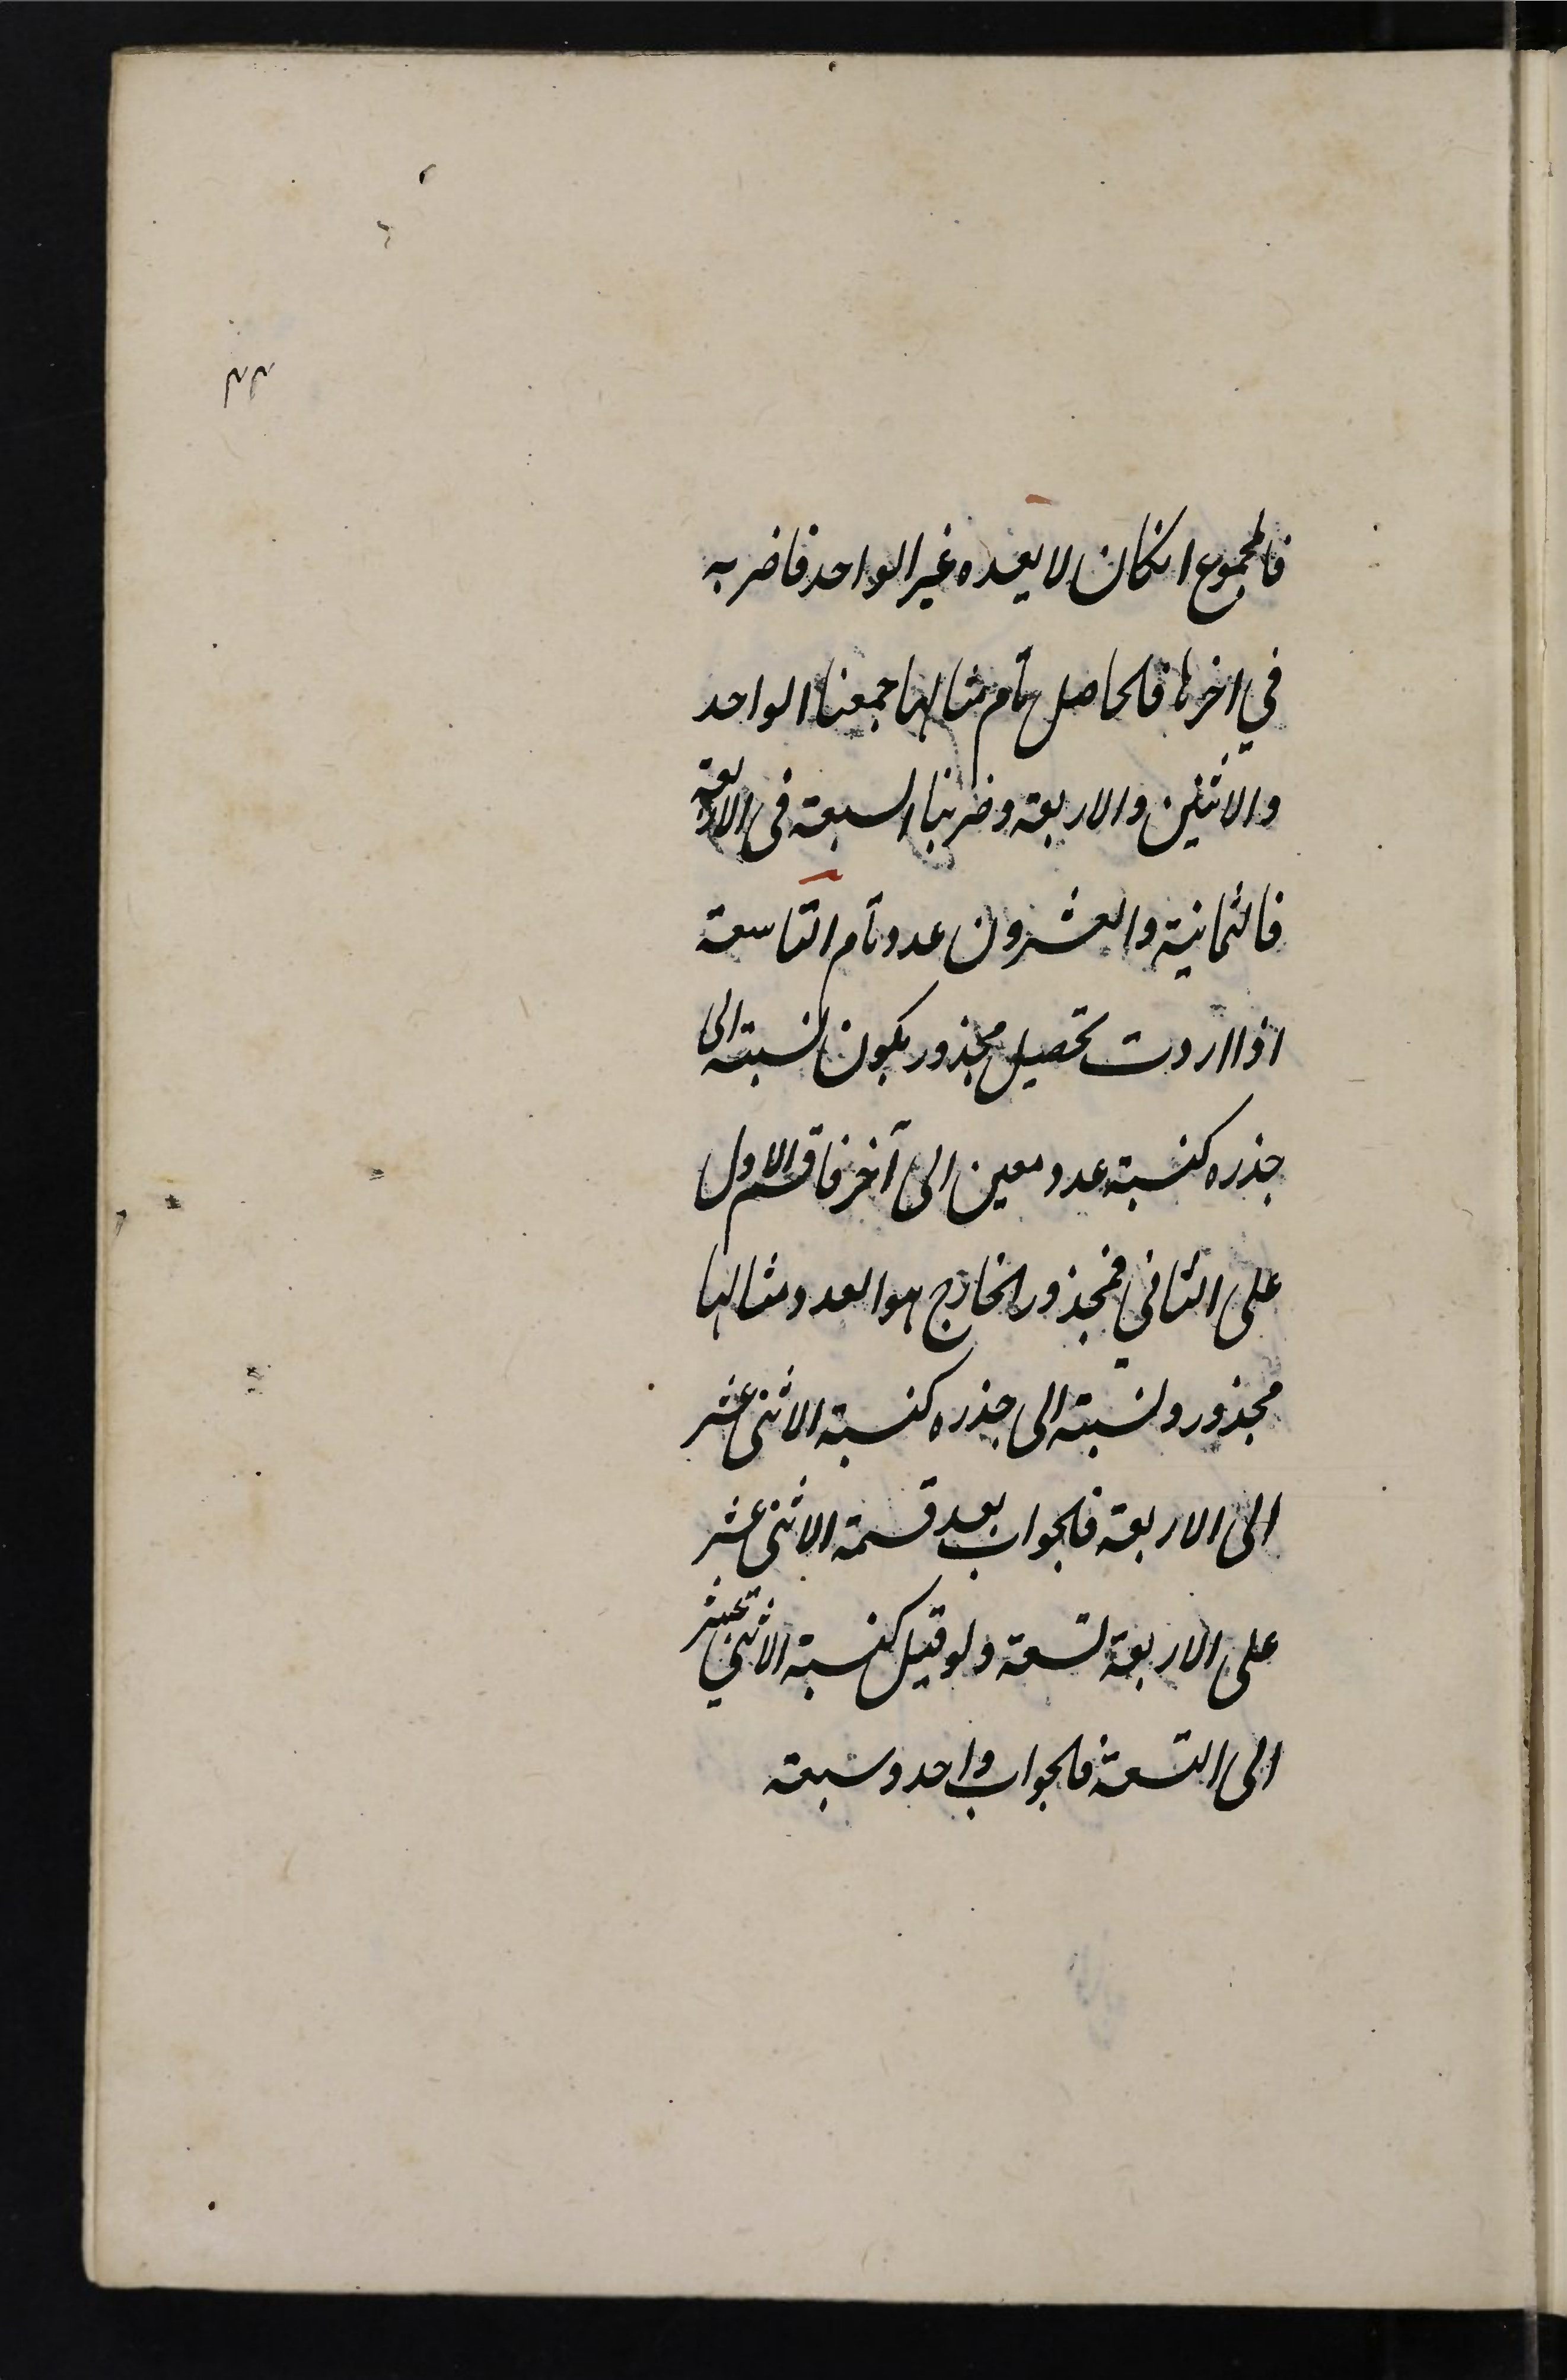 فالمجموع انكان لا يعده غير الواحد فاضربه
في اخرها فالحاصل تام مثالها جمعنا الواحد
والاثنين والاربعة وضربنا السبعة فى الاربعة
فالثمانية والعشرون عدد تام التاسعة
اذا اردت تحصيل مجذور يكون نسبته الى
جذره كنسبة عدد معين الى آخر فاقسم الاول
على الثاني فمجذور الخارج هو العدد مثالها
مجذور ونسبته الى جذره كنسبة الاثنى عشر
الى الاربعة فالجواب بعد قسمة الاثنى عشر
على الاربعة تسعة ولو قيل كنسبة الاثني عشر
الى التسعة فالجواب واحد وسبعة